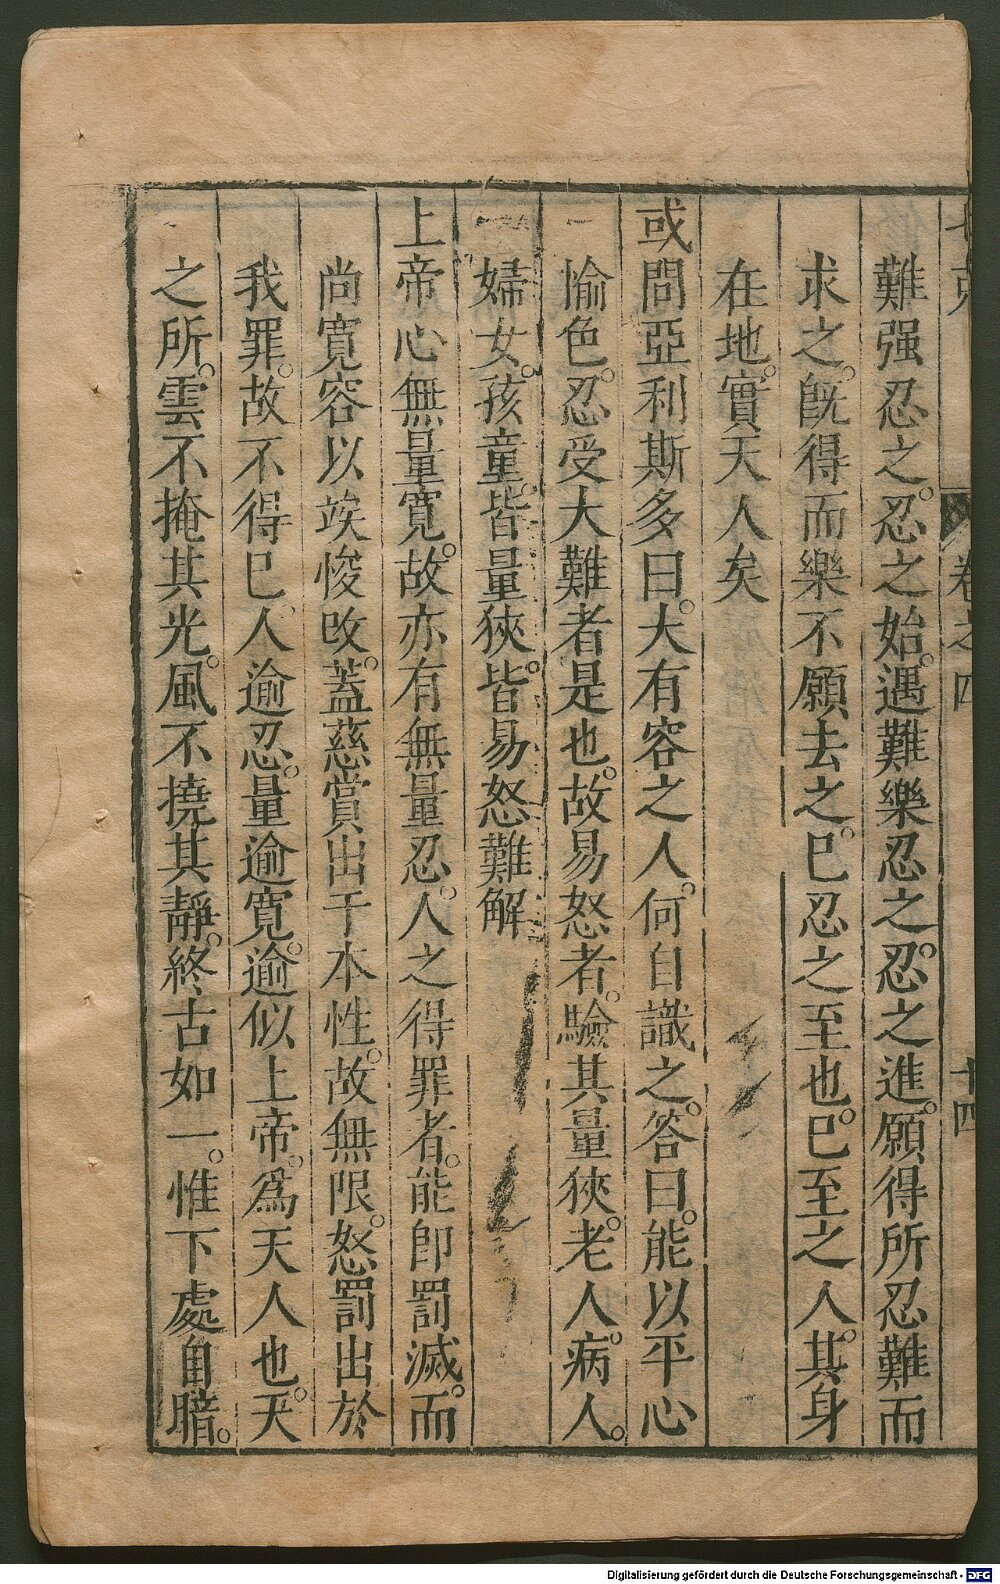 七克 卷之四 十四
難强忍之。忍之始。遇難樂忍之。忍之進。願得所忍難而
求之。旣得而樂不願去之。已忍之至也。已至之人。其身
在地。實天人矣
或問亞利斯多曰。大有容之人。何自識之。答曰。能以平心
愉色。忍受大難者是也。故易怒者。驗其量狹。老人。病人。
婦女。孩童。皆量狹。皆易怒難解
上帝心無量寬。故亦有無量忍。人之得罪者。能卽罰滅。而
尚寬容以竢悛改。蓋慈賞出于本性。故無限。怒罰出於
我罪。故不得已。人逾忍。量逾寬。逾似上帝。爲天人也。天
之所。雲不掩其光。風不撓其靜。終古如一。惟下處自暗。
Digitalisierung gefördert durch die Deutsche Forschungsgemeinschaft - DFG